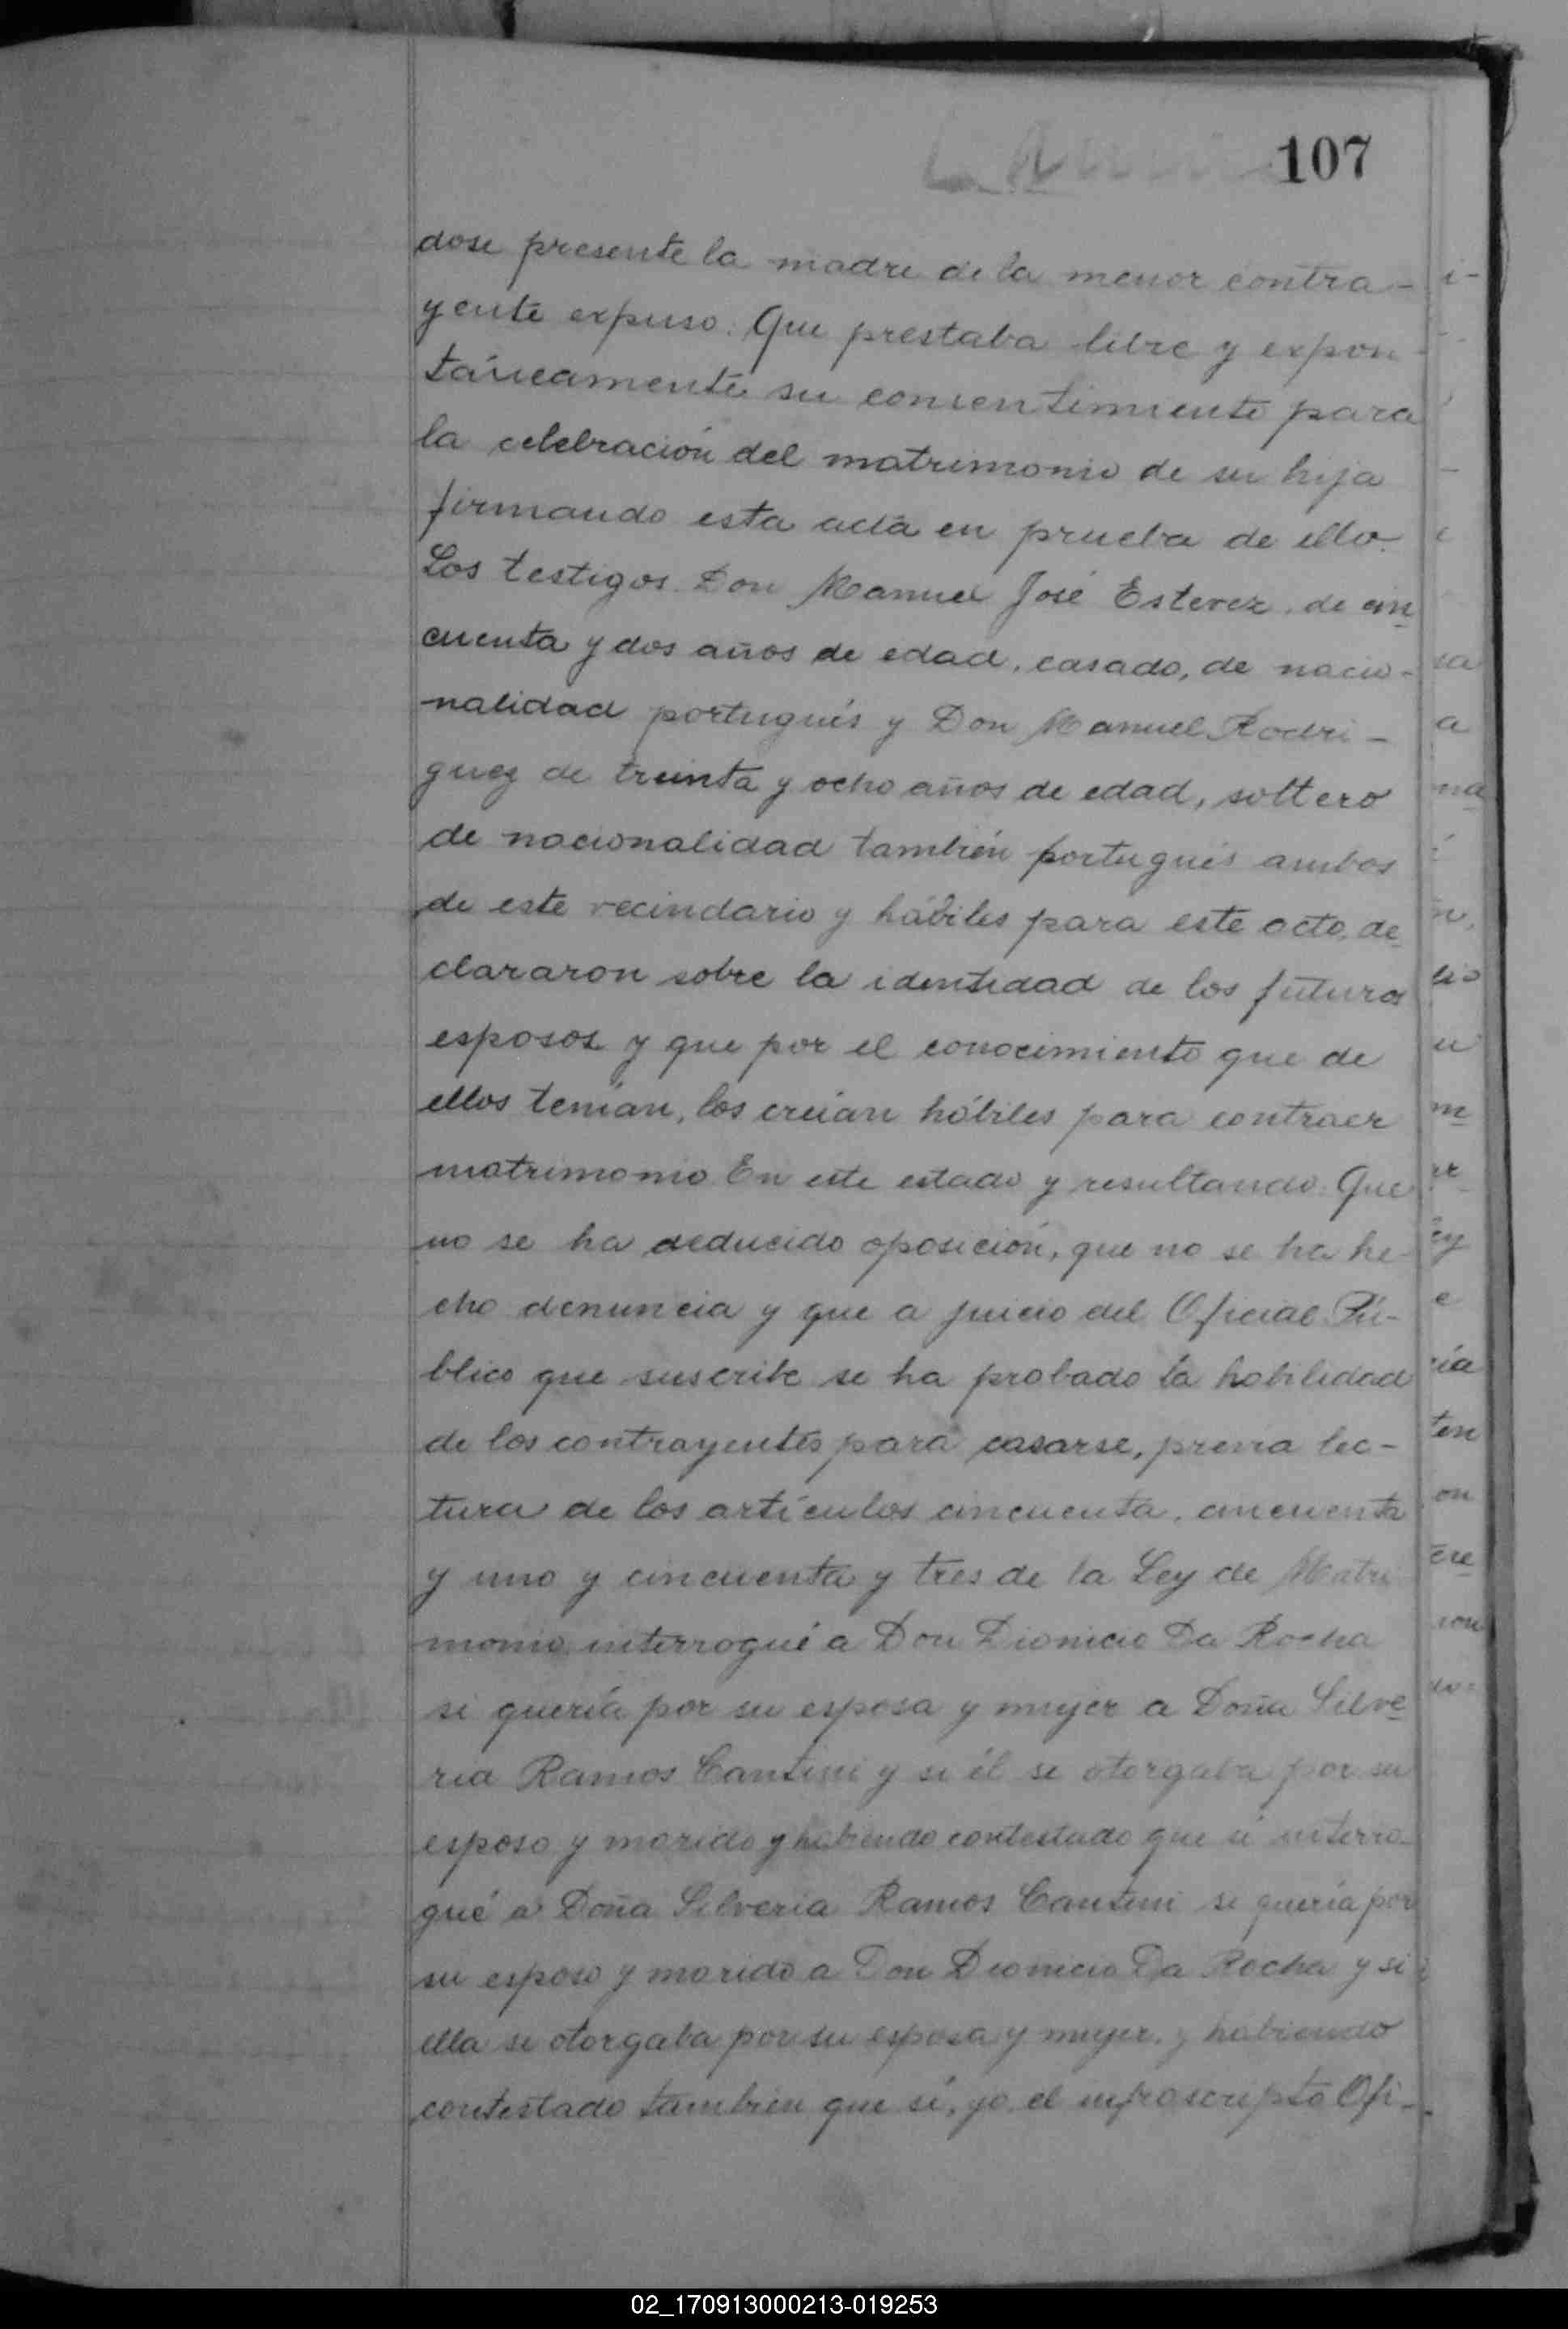 107
dose presente la madre de la menor contra-
yente expuso: Que prestaba libre y expon
táneamente su consentimiento para
la celebración del matrimonio de su hija
firmando esta acta en prueba de ello.
Los testigos Don Manuel José Esterez, de cin
cuenta y dos años de edad, casado, de nacio-
nalidad portugués y Don Manuel Rodri-
guez de treinta y ocho años de edad, soltero
de nacionalidad también portugués ambos
de este vecindario y hábiles para este acto, de
clararon sobre la identidad de los futuros
esposos y que por el conocimiento que de
ellos tenían, los creían hábiles para contraer
matrimonio. En este estado y resultando: Que
no se ha deducido oposición, que no se ha he-
cho denuncia y que a juicio del Oficial Pú-
blico que suscribe se ha probado la habilidad
de los contrayentes para casarse, previa lec-
tura de los artículos cincuenta, cincuenta
y uno y cincuenta y tres de la Ley de Matri
monio interrogué a Don Dionicio Da Rocha
si quería por su esposa y mujer a Doña Silve
ria Ramos Cantini y si él se otorgaba por su
esposo y marido y habiendo contestado que si interro-
gué a Doña Silveria Ramos Cantini si quería por
su esposo y marido a Don Dionicio Da Rocha y si
ella se otorgaba por su esposa y mujer, y habiendo
contestado también que sí, yo el infrascripto Ofi-
02_170913000213-019253